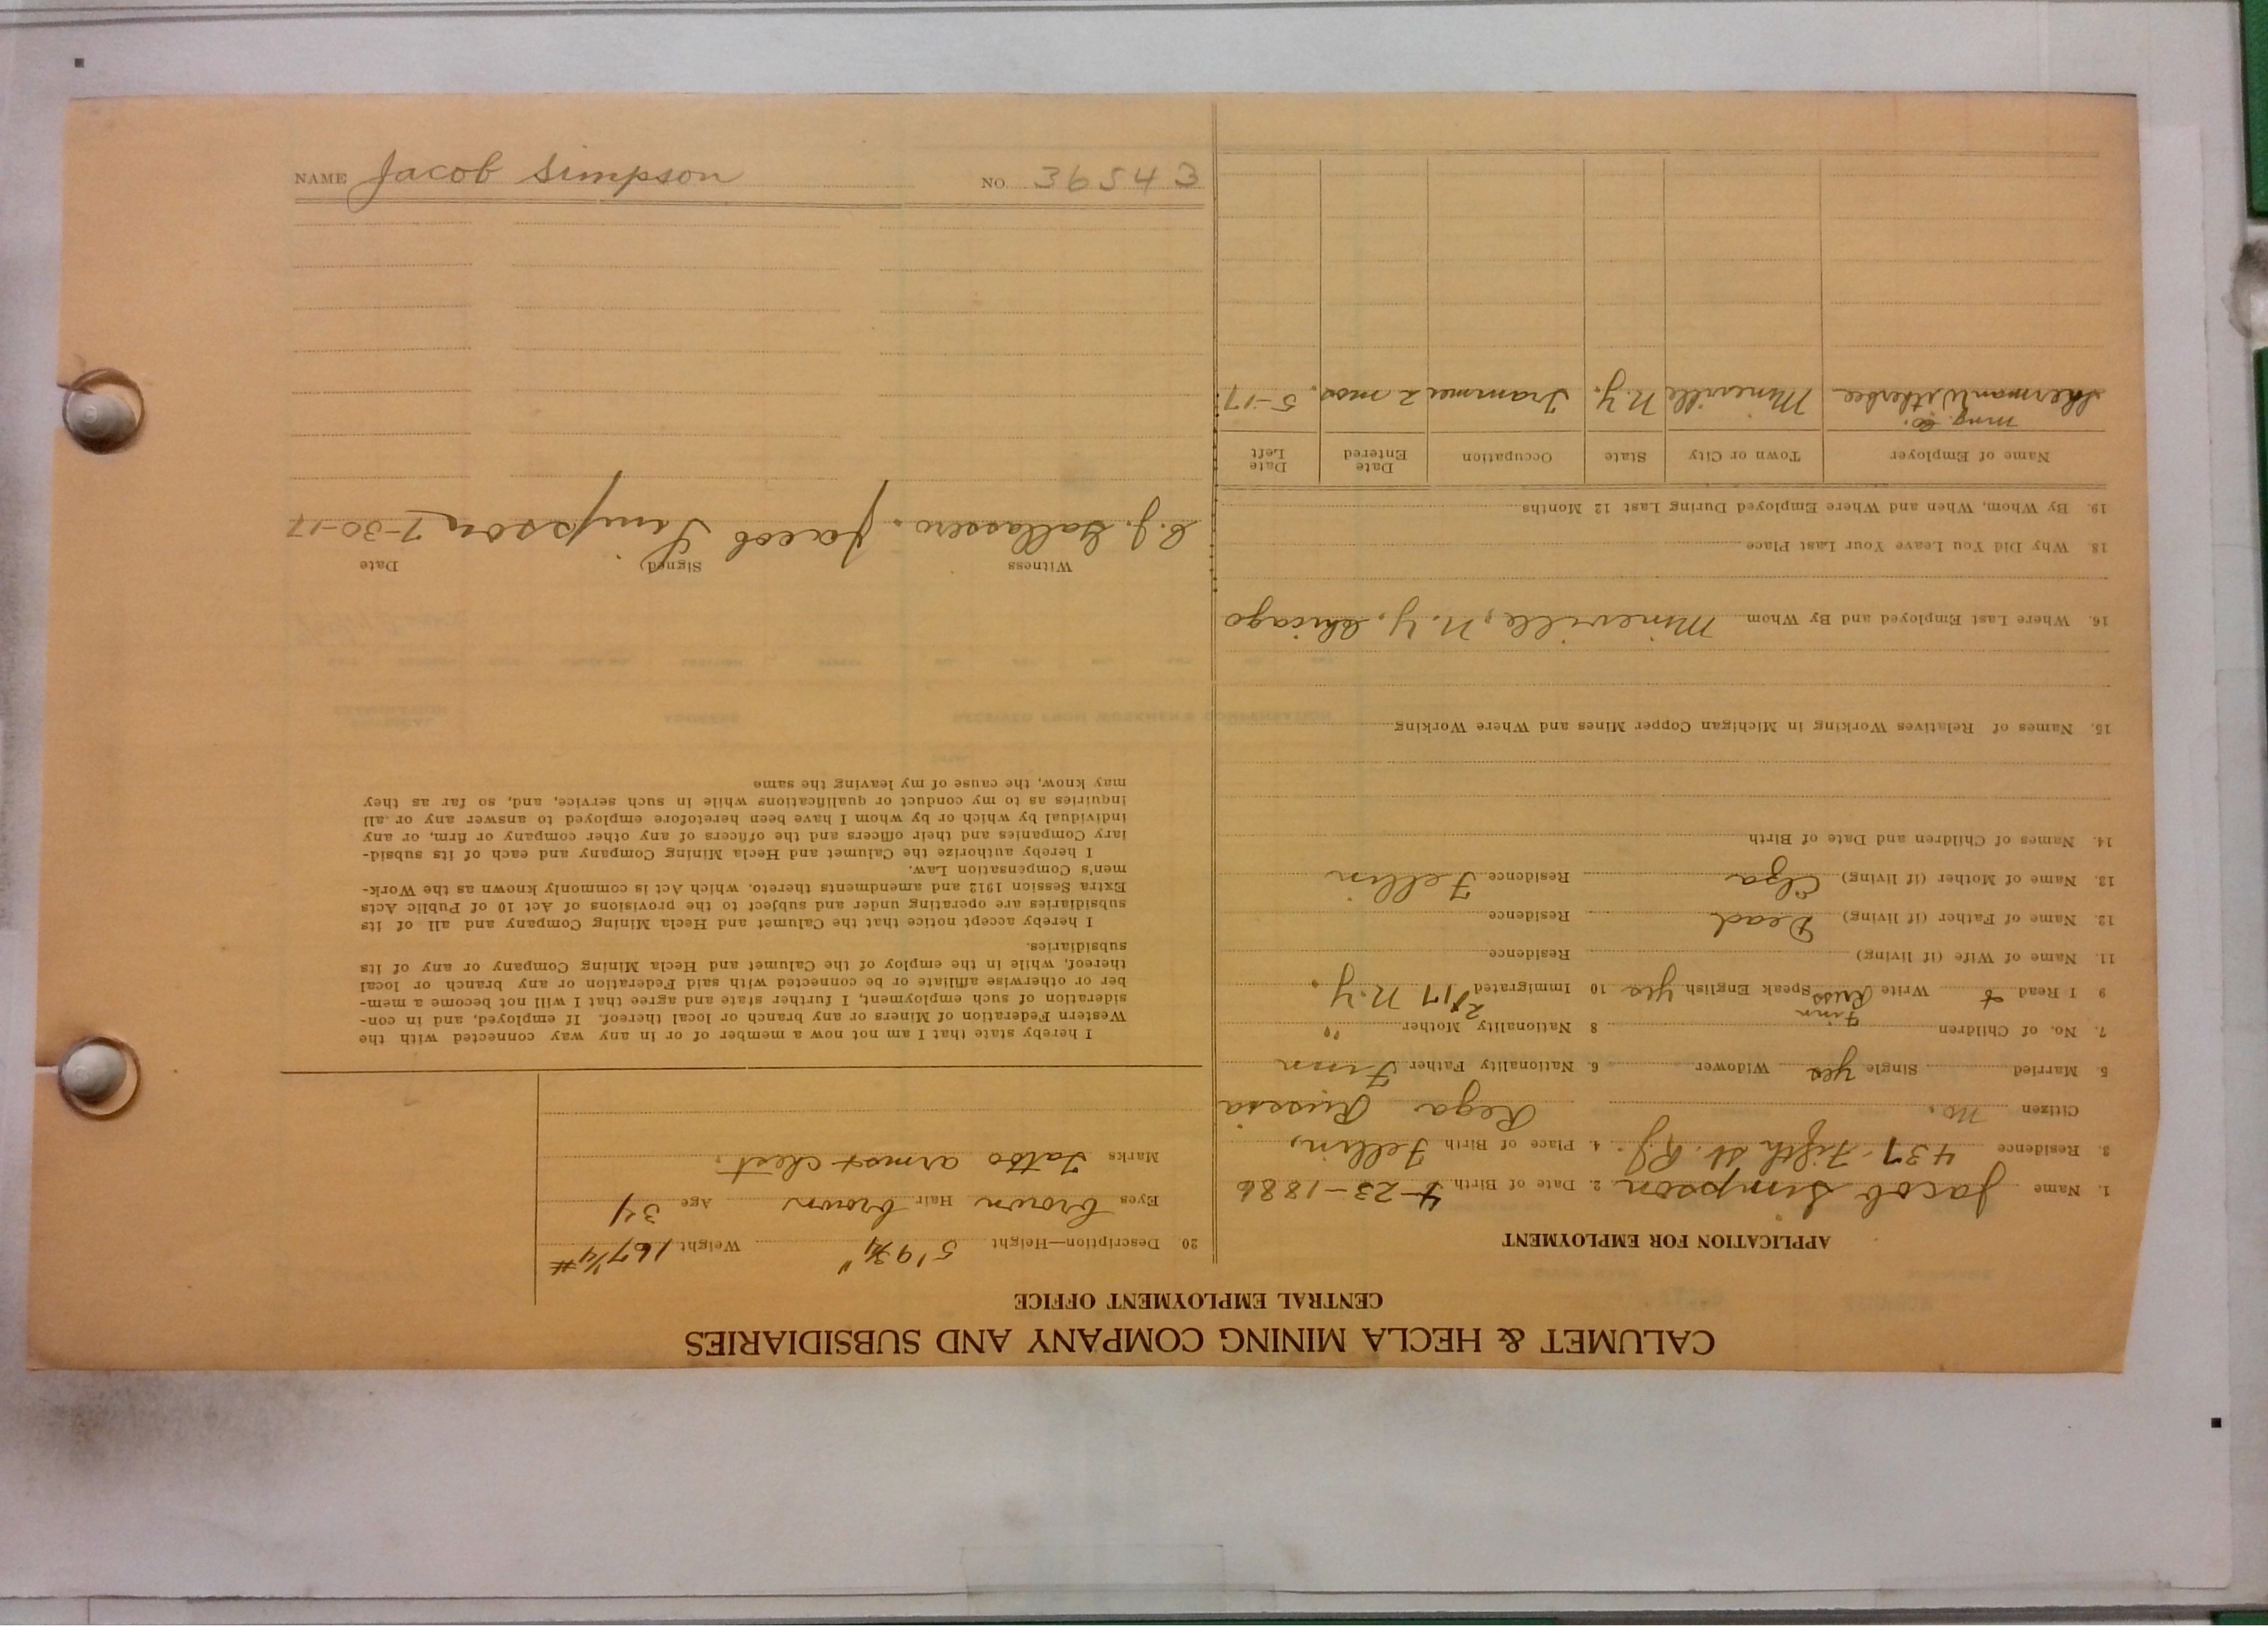 CALUMET & HECLA MINING COMPANY AND SUBSIDIARIES
CENTRAL EMPLOYMENT OFFICE
APPLICATION FOR EMPLOYMENT
1. Name Jacob Simpson 2. Date of Birth 4-23-1886
3. Residence 437-Fifth St. RJ. 4. Place of Birth Fellin,
Citizen no. Rega Russia
5. Married Single yes Widower 6. Nationality Father Finn
7. No. of Children 8 Nationality Mother "
9 I Read & Write Finn Russ Speak English yes 10 Immigrated 2/17 N.Y.
11. Name of Wife (if living) Residence
12. Name of Father (if living) Dead Residence
13. Name of Mother (if living) Elza Residence Fellin
14. Names of Children and Date of Birth
15. Names of Relatives Working in Michigan Copper Mines and Where Working
16. Where Last Employed and By Whom Mineville, N.Y. Chicago
18. Why Did You Leave Your Last Place
19. By Whom, When and Where Employed During Last 12 Months
Name of Employer Town or City State Occupation Date Entered Date Left
Sherman Witherbee Ming. Co. Mineville N.Y. Trammer 2 mos. 5-17
20. Description—Height 5' 9 3/4" Weight 167 1/4 #
Eyes brown Hair brown Age 34
Marks Tatoo arms & chest.
I hereby state that I am not now a member of or in any way connected with the
Western Federation of Miners or any branch or local thereof. If employed, and in con-
sideration of such employment, I further state and agree that I will not become a mem-
ber or otherwise affiliate or be connected with said Federation or any branch or local
thereof, while in the employ of the Calumet and Hecla Mining Company or any of its
subsidiaries.
I hereby accept notice that the Calumet and Hecla Mining Company and all of its
subsidiaries are operating under and subject to the provisions of Act 10 of Public Acts
Extra Session 1912 and amendments thereto, which Act is commonly known as the Work-
men's Compensation Law.
I hereby authorize the Calumet and Hecla Mining Company and each of its subsid-
iary Companies and their officers and the officers of any other company or firm, or any
individual by which or by whom I have been heretofore employed to answer any or all
inquiries as to my conduct or qualifications while in such service, and, so far as they
may know, the cause of my leaving the same
Witness Signed Date
C. J. Gallassero. Jacob Simpson 7-30-17
NAME Jacob Simpson NO. 36543